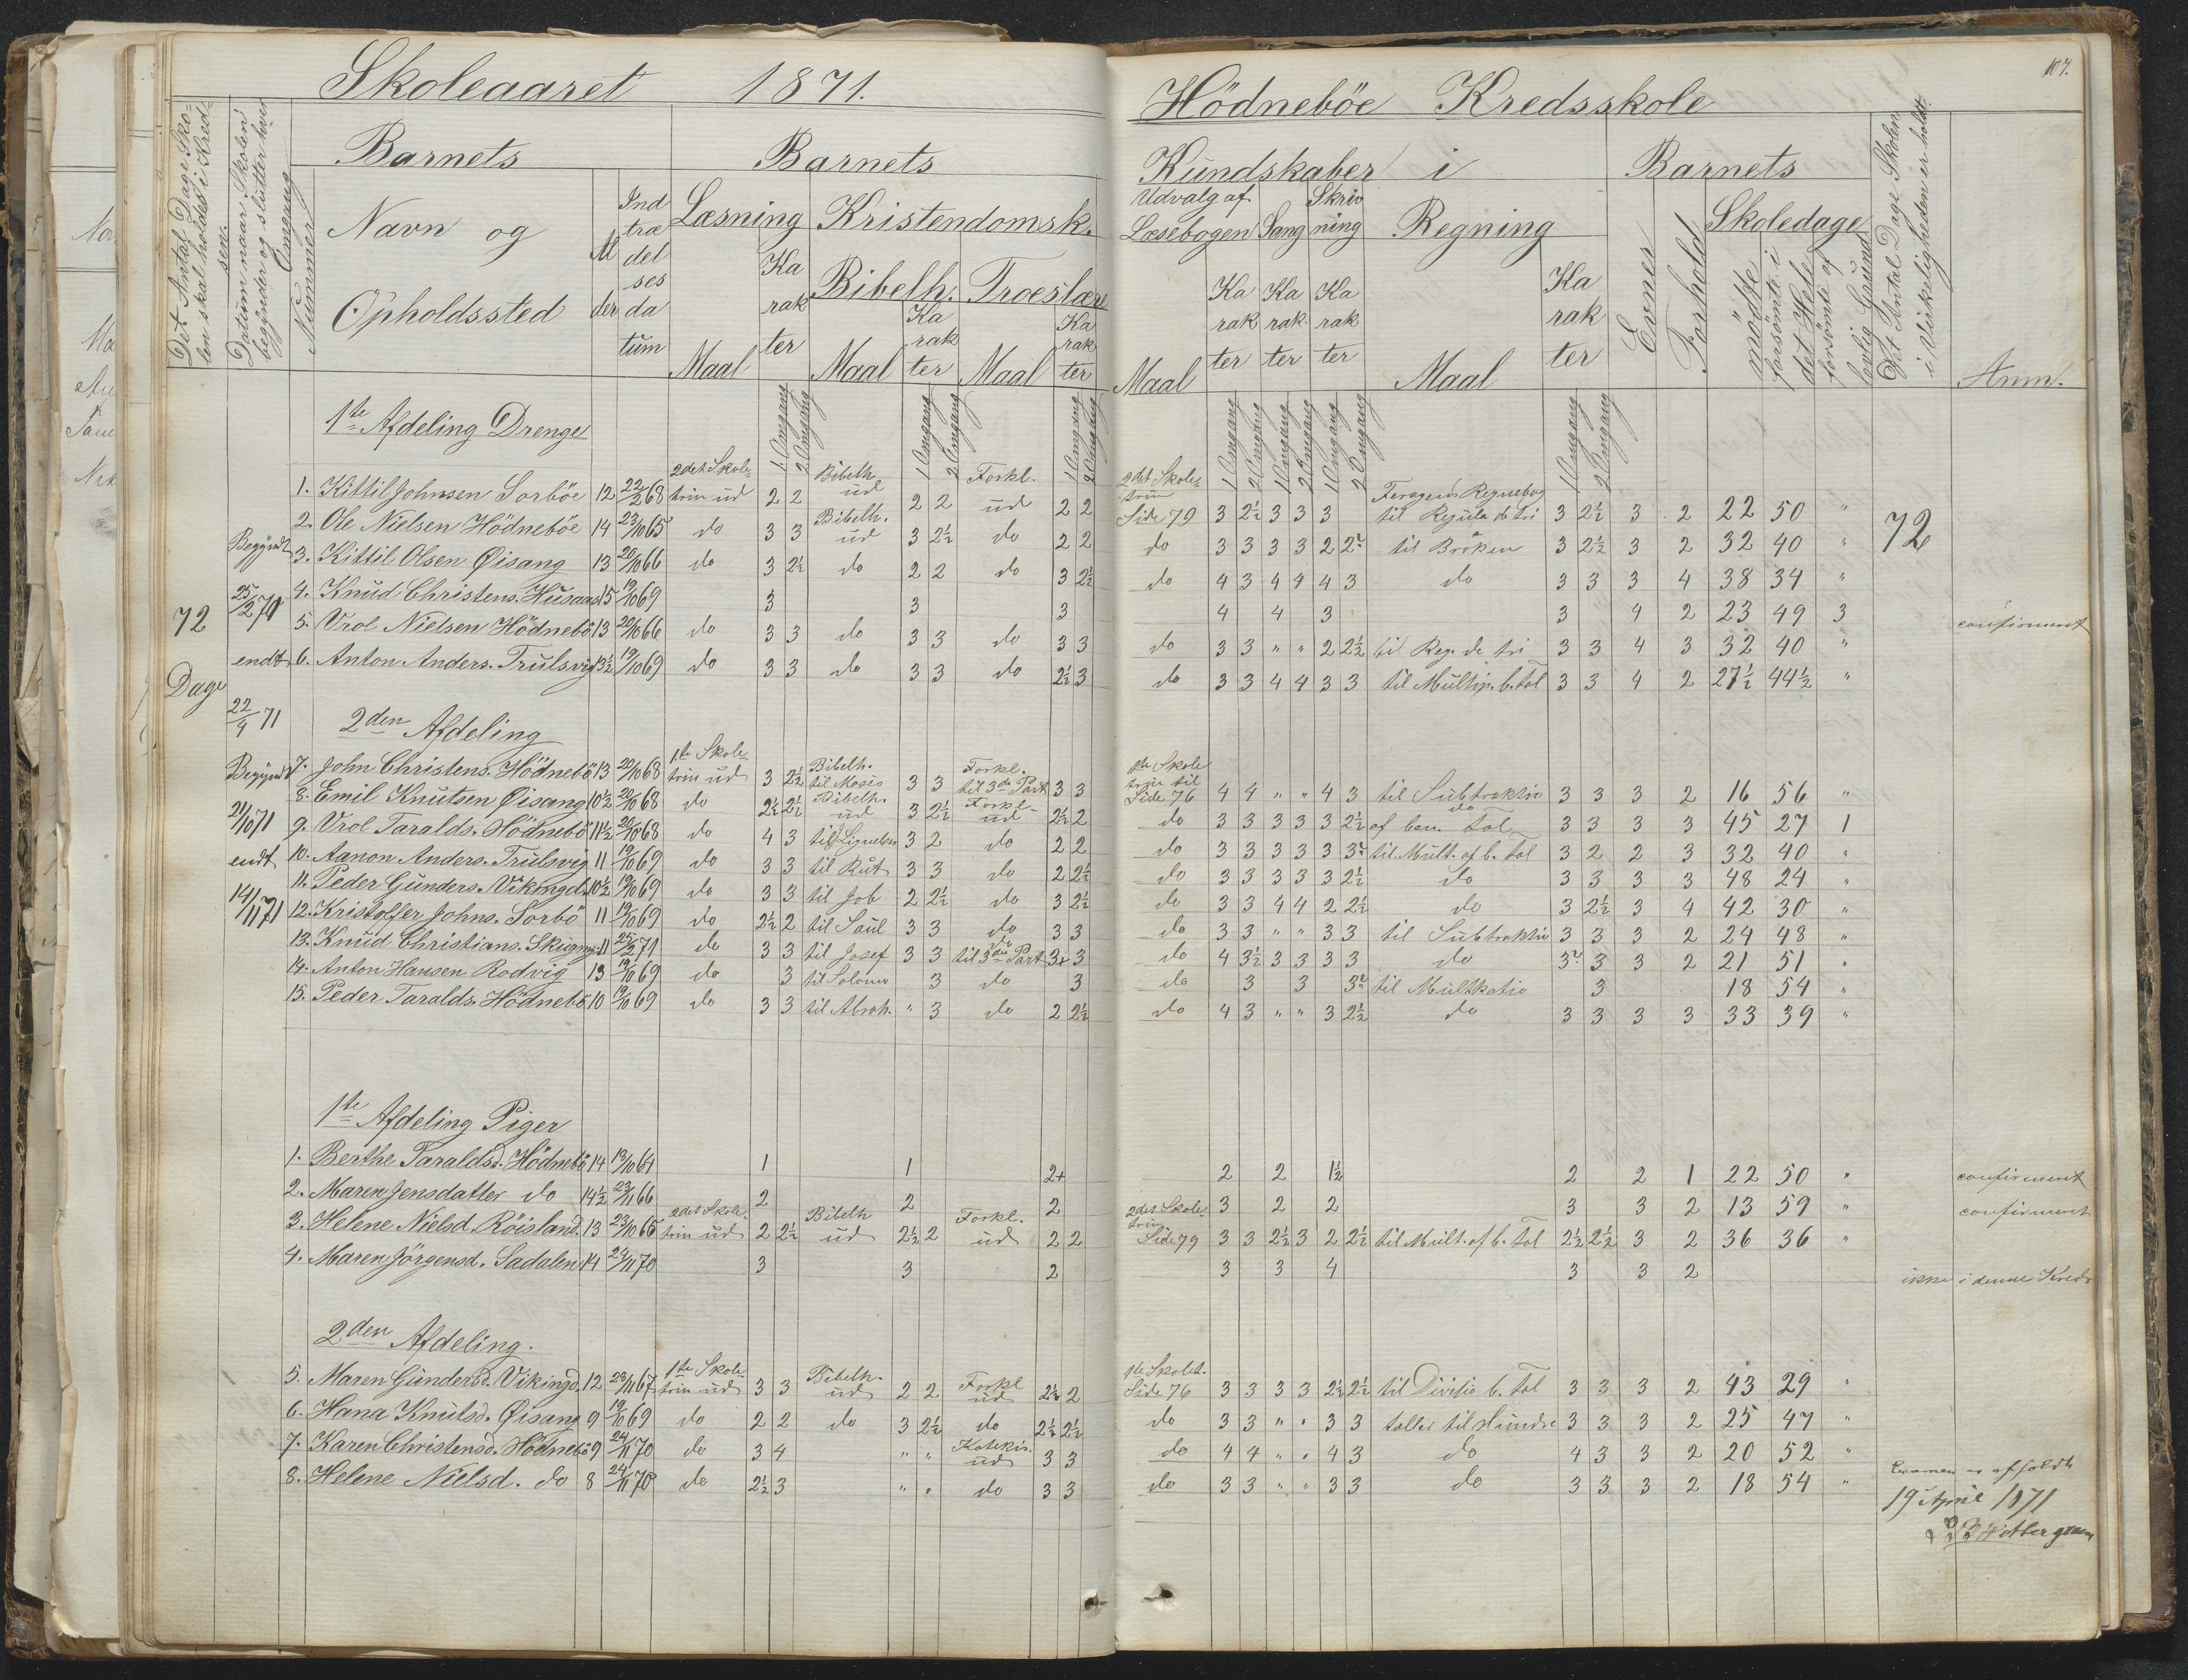 Skoleaaret 1871.
Det Antal Dage Sko-
len skal holdes i Kred-
sen.
Datum naar Skolen
begynder og slutter hver
Omgang
Nummer
Barnets
Navn og
Opholdssted
Al
der
Ind
træ
del
ses
da
tum
Barnets
Læsning Kristendomsk.
Bibelh. Troeslære
Maal
Ka
rak
ter
Maal
Ka
rak
ter
Maal
Ka
rak
ter
1 Omgang 2 Omgang 1 Omgang 2 Omgang 1 Omgang 2 Omgang
72
Dage
Begyndt
25/2 70
endt
22/4 71
Begyndt
21/10 71
endt
14/11 71
1te Afdeling Drenge
1. Kittil Johnsen Sorböe 12 22/2 68 2det Skole-trin ud 2 2 Bibelh ud 2 2 Forkl. ud 2 2
2. Ole Nielsen Hödneböe 14 23/10 65 do 3 3 Bibelh. ud 3 2½ do 2 2
3. Kittil Olsen Øisang 13 20/10 66 do 3 2½ do 2 2 do 3 2½
4. Knud Christens. Husaas 15 19/10 69 3 3 3
5. Vrol Nielsen Hödnebö 13 20/10 66 do 3 3 do 3 3 do 3 3
6. Anton Anders. Trulsvig 13½ 19/10 69 do 3 3 do 3 3 do 2½ 3
2den Afdeling
7. John Christens. Hödnebö 13 20/10 68 1te Skole-trin ud 3 2½ Bibelh. til Mosis 3 3 Forkl. til 3de Part 3 3
8. Emil Knutsen Øisang 10½ 20/10 68 do 2½ 2½ Bibelh. ud 3 2½ Forkl ud 2½ 2
9. Vrol Taralds. Hödnebö 11½ 20/10 68 do 4 3 til Lignelsen 3 2 do 2 2
10. Aanon Anders. Trulsvig 11 19/10 69 do 3 3 til Rut 3 3 do 2 2½
11. Peder Gunders. Vikingd. 10½ 19/10 69 do 3 3 til Job 2 2½ do 3 2½
12. Kristoffer Johns. Sorbö 11 19/10 69 do 2½ 2 til Saul 3 3 do 3 3
13. Knud Christians. 11 25/2 71 do 3 3 til Josef 3 3 do til 3die Part 3+ 3
14. Anton Hansen Rodvig 13 19/10 69 do 3 til Solomo 3 do 3
15. Peder Taralds. Hödnebö 10 19/10 69 do 3 3 til Abrah. " 3 do 2 2½
1te Afdeling Piger
1. Berthe Taraldsd. Hödnebö 14 19/10 64 1 1 2+
2. Maren Jensdatter do 14½ 23/11 66 2 2 2
3. Helene Nielsd Röisland. 13 23/10 66 2det Skole-trin ud 2 2½ Bibelh ud 2½ 2 Forkl. ud 2 2
4. Maren Jörgensd. Sadalen 14 24/11 70 3 3 2
2den Afdeling.
5. Maren Gundersd. Vikingd. 12 28/11 67 1te Skole-trin ud 3 3 Bibelh. ud 2 2 Forkl ud 2½ 2
6. Hana Knutsd. Øisang 9 19/10 69 do 2 2 do 3 2½ do 2½ 2½
7. Karen Christensd. Hödnebö 9 24/11 70 do 3 4 " " Katekis. ud 3 3
8. Helene Nielsd. do 8 24/11 70 do 2½ 3 " " do 3 3
107.
Hödneböe Kredsskole
Kundskaber i
Udvalg af
Læsebogen Sang
Skriv
ning
Regning
Maal
Ka
rak
ter
Ka
rak
ter
Ka
rak
ter
Maal
Ka
rak
ter
Barnets
Evner
Forhold
Skoledage
mödte
forsömte i
det Hele
forsömte af
lovlig Grund
Det Antal Dage Skolen
i Virkeligheden er holdt.
Anm.
1 Omgang 2 Omgang 1 Omgang 2 Omgang 1 Omgang 2 Omgang 1 Omgang 2 Omgang
2det Skole-trin Side 79 3 2½ 3 3 3 Feragens Regnebog til Regula de tri 3 2½ 3 2 22 50 "
72
do 3 3 3 3 2 2 til Bröken 3 2½ 3 2 32 40 "
do 4 3 4 4 4 3 do 3 3 3 4 38 34 "
4 4 3 3 4 2 23 49 3 confirmert
do 3 3 " " 2 2½ til Reg. de tri 3 3 4 3 32 40 "
do 3 3 4 4 3 3 til Multip. b. Tal 3 3 4 2 27½ 44½ "
1te Skole trin til Side 76 4 4 " " 4 3 til Subtraktio 3 3 3 2 16 56 "
do 3 3 3 3 3 2½ do af ben. Tal 3 3 3 3 45 27 1
do 3 3 3 3 3 3 til Mult. af b. Tal 3 2 2 3 32 40 "
do 3 3 3 3 3 2½ do 3 3 3 3 48 24 "
do 3 3 4 4 2 2½ do 3 2½ 3 4 42 30 "
do 3 3 " " 3 3 til Subtraktio 3 3 3 2 24 48 "
do 4 3½ 3 3 3 3 do 3 3 3 2 21 51 "
do 3 3 3 til Multkatio 3 18 54 "
do 4 3 " " 3 2½ do 3 3 3 3 33 39 "
2 2 1½ 2 2 1 22 50 " confirmert
3 2 2 3 3 2 13 59 " confirmert
2det Skole trin Side 79 3 3 2½ 3 2 2½ til Mult. af b. Tal 2½ 2½ 3 2 36 36 "
3 3 4 3 3 2 ikke i denne Kreds
1te Skolet. Side 76 3 3 3 3 2½ 2½ til Divitio b. Tal 3 3 3 2 43 29 "
do 3 3 " " 3 3 tæller til Hundre 3 3 3 2 25 47 "
do 4 4 " " 4 3 do 4 3 3 2 20 52 "
do 3 3 " " 3 3 do 3 3 3 2 18 54 "
Examen er afholdt
19 April 1871